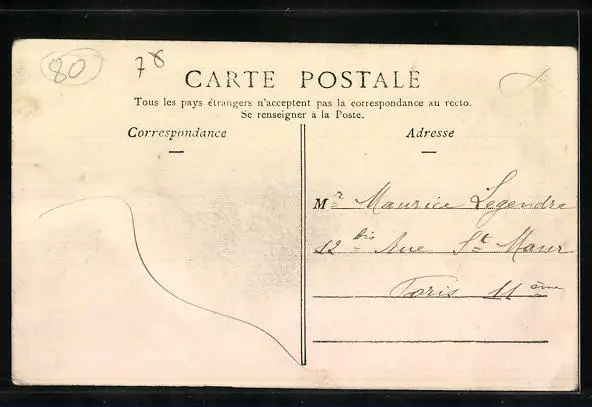 80
78
CARTE POSTALE
Tous les pays étrangers n'acceptent pas la correspondance au recto.
Se renseigner à la Poste.
Correspondance
Adresse
Mr Maurice Legendre
12 bis Rue St Maur
Paris 11ème